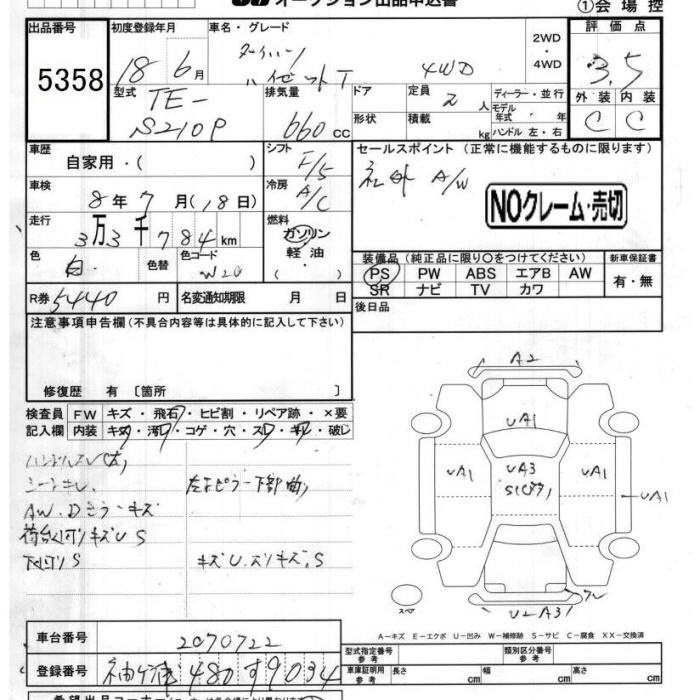 オークション出品申込書 ①会場控
出品番号 初度登録年月 車名・グレード 2WD 評価点
5358 18 6月 ダイハツ ハイゼットT 4WD ・4WD 3.5
型式 排気量 ドア 定員 ディーラー・並行 外装 内装
TE- 2人 モデル年式 年
S210P 660cc 形状 積載 kg ハンドル 左・右 C C
車歴 シフト セールスポイント (正常に機能するものに限ります)
自家用・( ) F/5 社外 A/W
車検 冷房
8年7月(18日) A/C NOクレーム・売切
走行 燃料
3万3千784km ガソリン
色 色替 色コード 軽油 装備品(純正品に限り〇をつけてください) 新車保証書
白 W20 ( ) PS PW ABS エアB AW 有・無
R券 5440円 名変通知期限 月 日 SR ナビ TV カワ
注意事項申告欄(不具合内容等は具体的に記入して下さい) 後日品
修復歴 有 [箇所 ]
検査員 FW キズ・飛石・ヒビ割・リペア跡・×要
記入欄 内装 キズ・汚レ・コゲ・穴・スレ・キレ・破レ
シートキレ
AW.Dミラーキズ
キズU S
S キズU.ズリキズ.S
A2
UA1
UA1 UA3 UA1 UA1
U2 A3
スペア
A-キズ E-エクボ U-凹み W-補修跡 S-サビ C-腐食 XX-交換済
車台番号 2070722
登録番号 480 す 9034
型式指定番号 参考 類別区分番号 参考
車庫証明用 参考 長さ cm 幅 cm 高さ cm